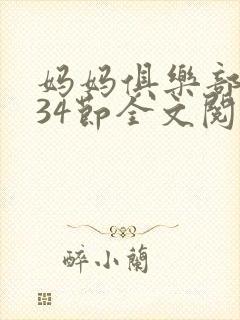 妈妈俱樂部
34節全文閱
醉小蘭